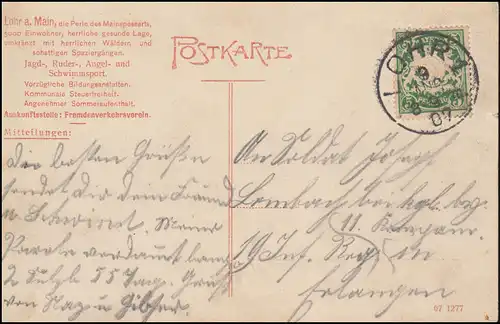 Lohr a. Main, die Perle des Mainspessarts,
5000 Einwohner, herrliche gesunde Lage,
umkränzt mit herrlichen Wäldern und
schattigen Spaziergängen.
Jagd-, Ruder-, Angel- und
Schwimmsport.
Vorzügliche Bildungsanstalten.
Kommunale Steuerfreiheit.
Angenehmer Sommeraufenthalt.
Auskunftsstelle: Fremdenverkehrsverein.
Mitteilungen:
POSTKARTE
LOHR
07
Die besten Grüße
sendet Dir dein Freund
Schwind. Meine
Parole verdammt lang
2 55 Tag. Gruß
von
An Soldat Joseph
Lembach beim kgl. b.
19 Inf. Reg.
11. Kompan.
in
Erlangen
07 1277